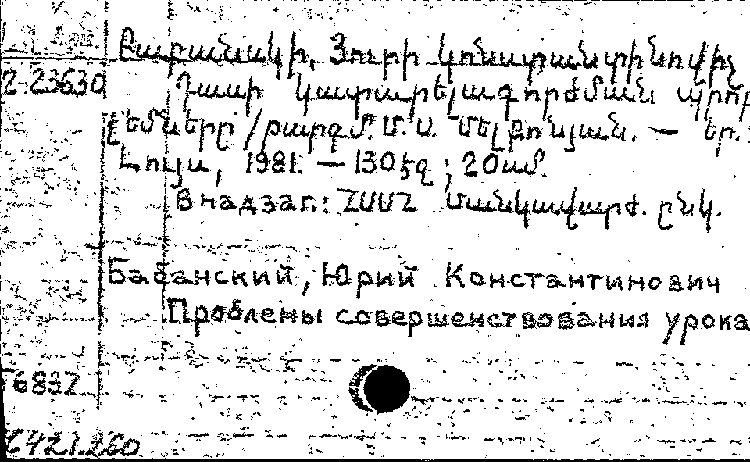 Բաբանսկի, Յուրի Կոնստանտինովիչ
2-23630
Դասի կատարելագործման պրոբ
լեմները /թարգմ. Մ. Ս. Մելքոնյան. — Եր.
Լույս, 1981. — 130 էջ ; 20 սմ.
В надзаг.: ՀՍՍՀ մանկավարժ. ընկ.
Бабанский, Юрий Константинович
Проблемы совершенствования урока
6837
421.260